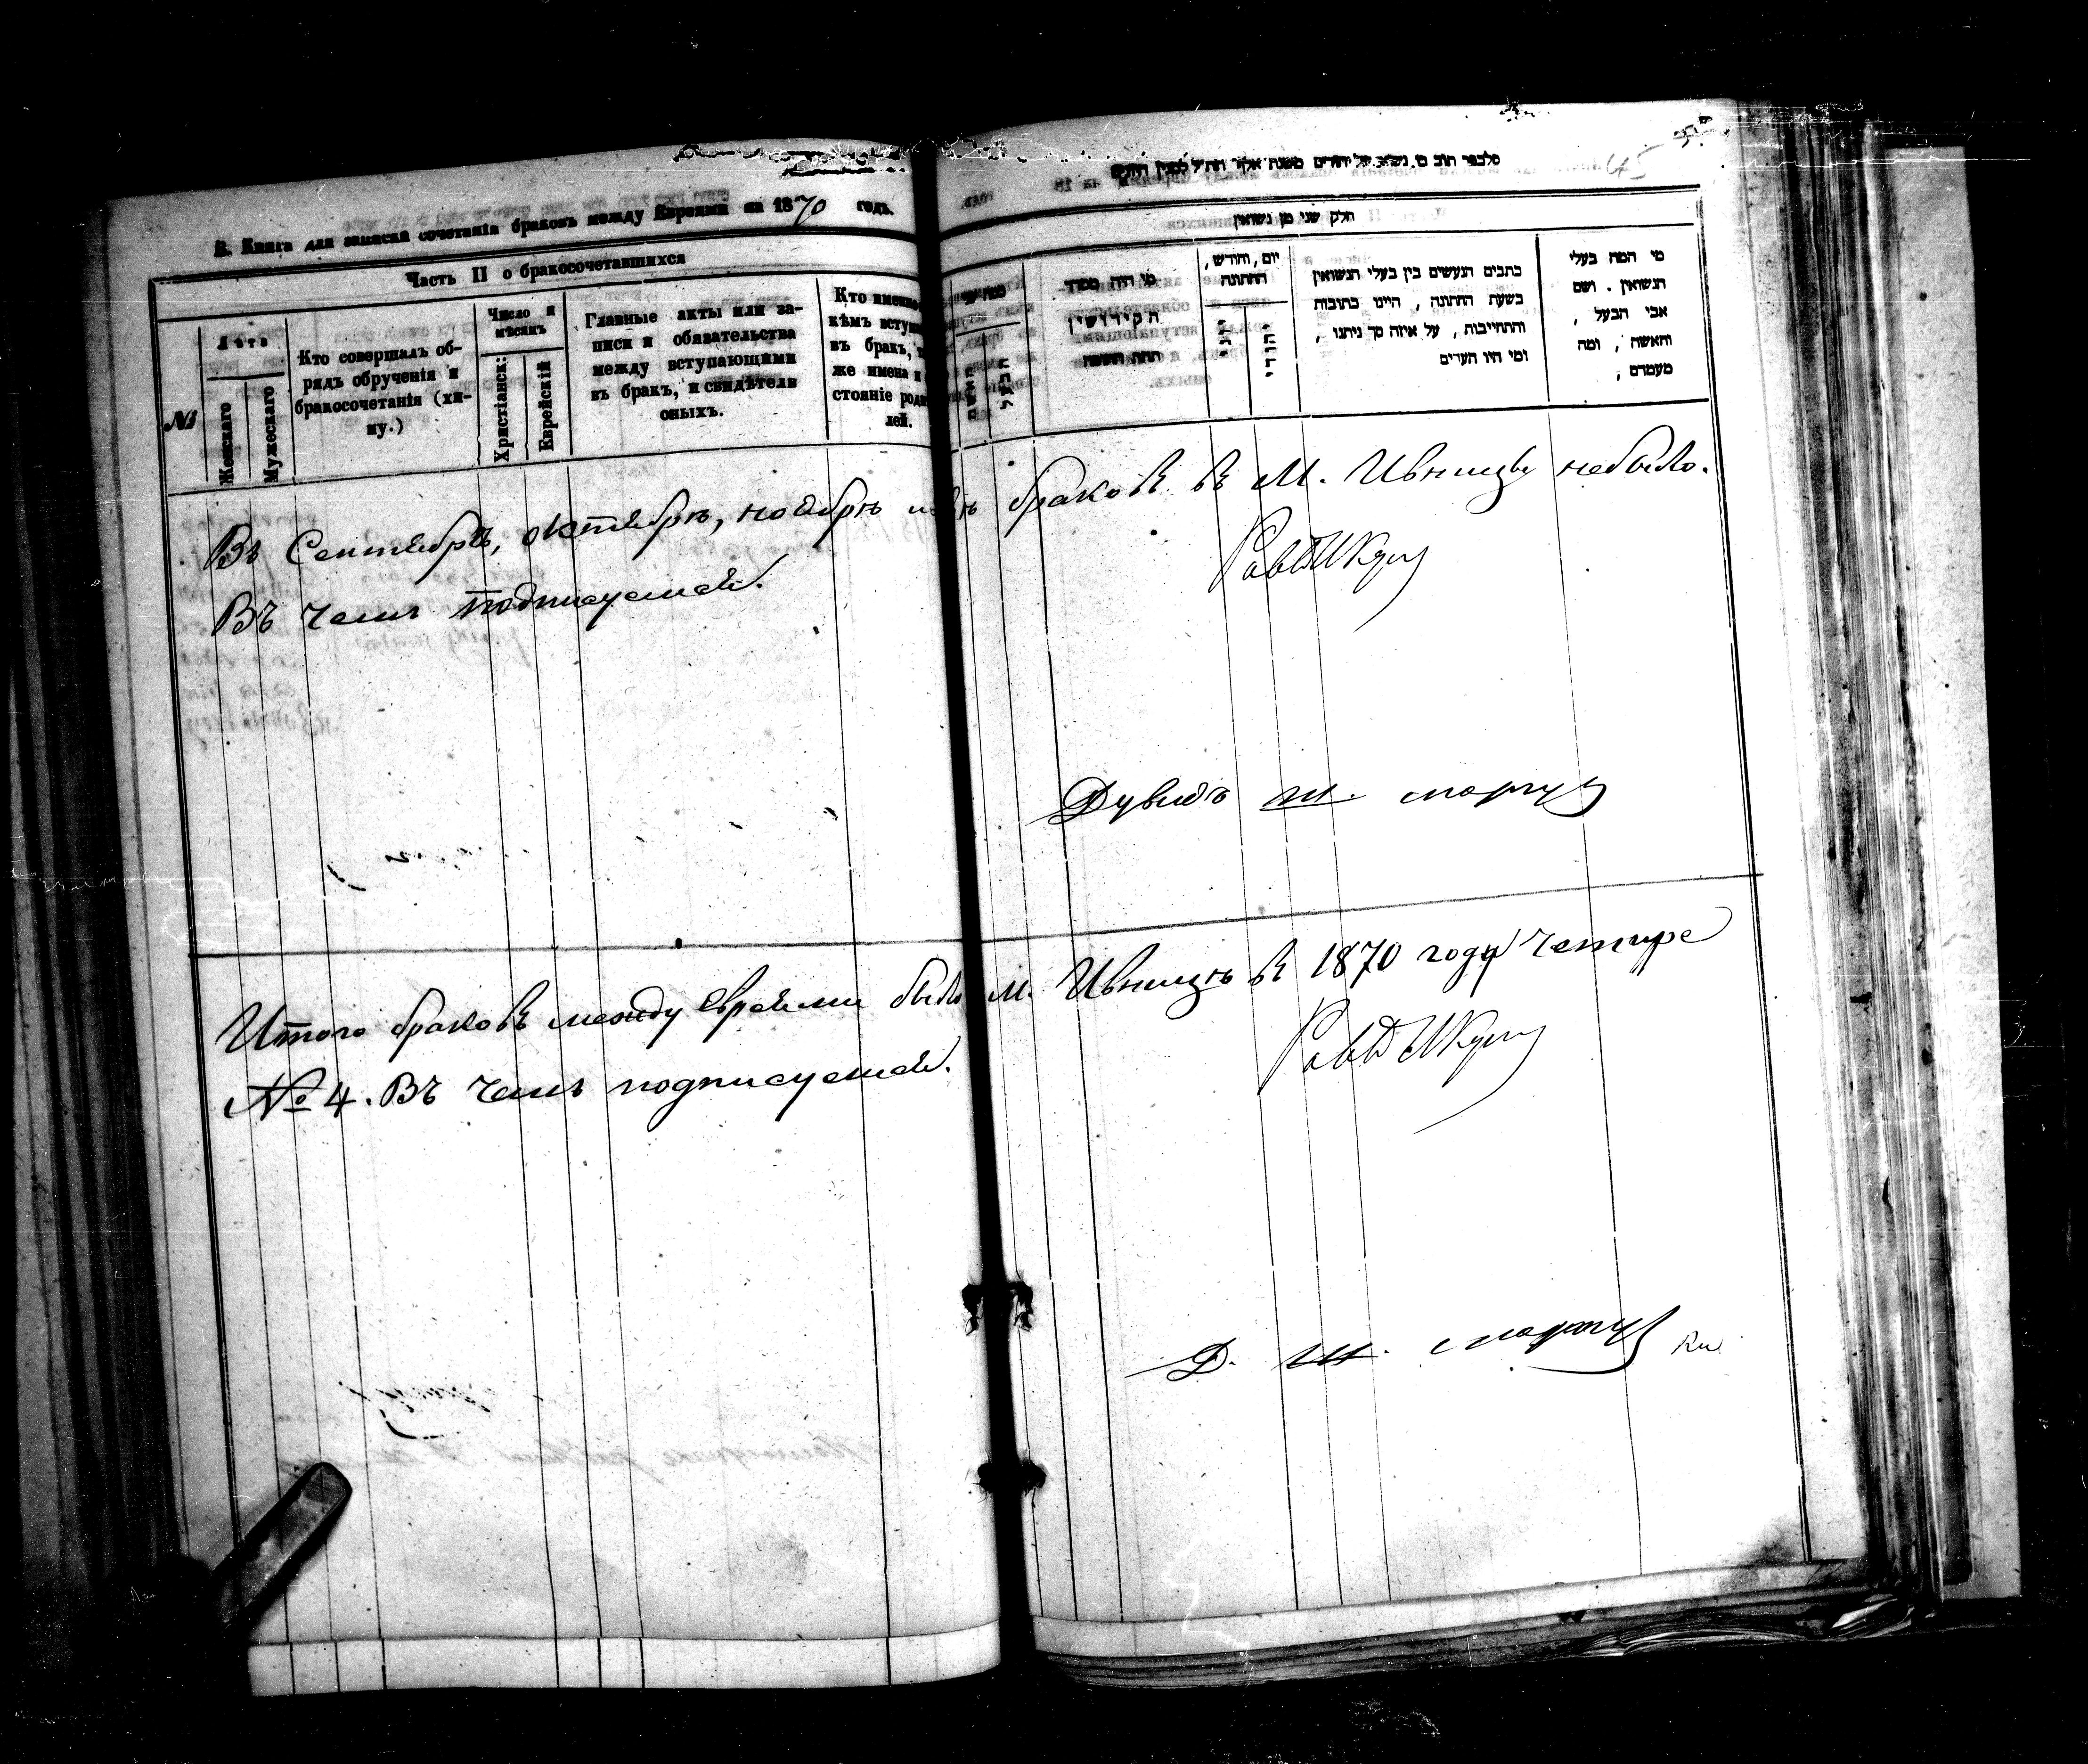 В. Книга для записки сочетанія браковъ между Евреями на 1870 годъ.
Часть II о бракосочетавшихся
№
Лѣта
Женскаго
Мужескаго
Кто совершалъ об-
рядъ обрученія и
бракосочетанія (хи-
пу.)
Число и
мѣсяцъ
Христіанск:
Еврейскій
Главные акты или за-
писи и обязательства
между вступающими
въ бракъ, и свидѣтели
оныхъ.
Кто именно
кѣмъ вступ
въ бракъ,
же имена и
стояніе роди
лей.
חלק שני מן נשואין
מי היה מסדר
הקידושין
תחת החופה
יום, וחודש,
החתונה
יוני
יהודי
כתבים הנעשים בין בעלי הנשואין
בשעת החתונה, היינו כתובות
והתחייבות, על איזה סך ניתנו,
ומי היו העדים
מי המה בעלי
הנשואין. ושם
אבי הבעל,
והאשה, ומה
מעמדם;
Въ Сентябрѣ, октябрѣ, ноябрѣ браковъ въ М. Ивницѣ небыло.
Въ чемъ подписуемся.
Дувидъ Ш.
Итого браковъ между Евреями было М. Ивницѣ въ 1870 году четире
№ 4. Въ чемъ подписуемся.
Д. Ш.